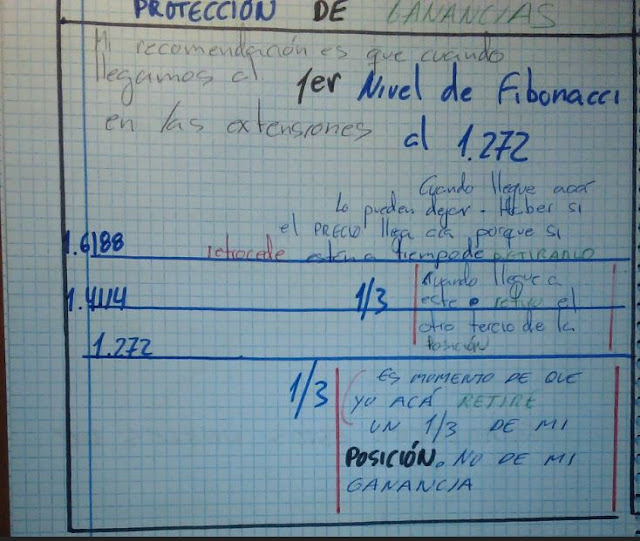 PROTECCIÓN DE GANANCIAS
Mi recomendación es que cuando
llegamos al 1er Nivel de Fibonacci
en las extensiones al 1.272
Cuando llegue acá
Lo pueden dejar. Haber si
el PRECIO llega acá porque si
1.6188 retrocede están a tiempo de RETIRARLO
Cuando llegue a
1.4114 1/3 este RETIRO el
otro tercio de la
1.272 POSICIÓN
1/3 ES MOMENTO DE QUE
YO ACÁ RETIRE
UN 1/3 DE MI
POSICIÓN. NO DE MI
GANANCIA